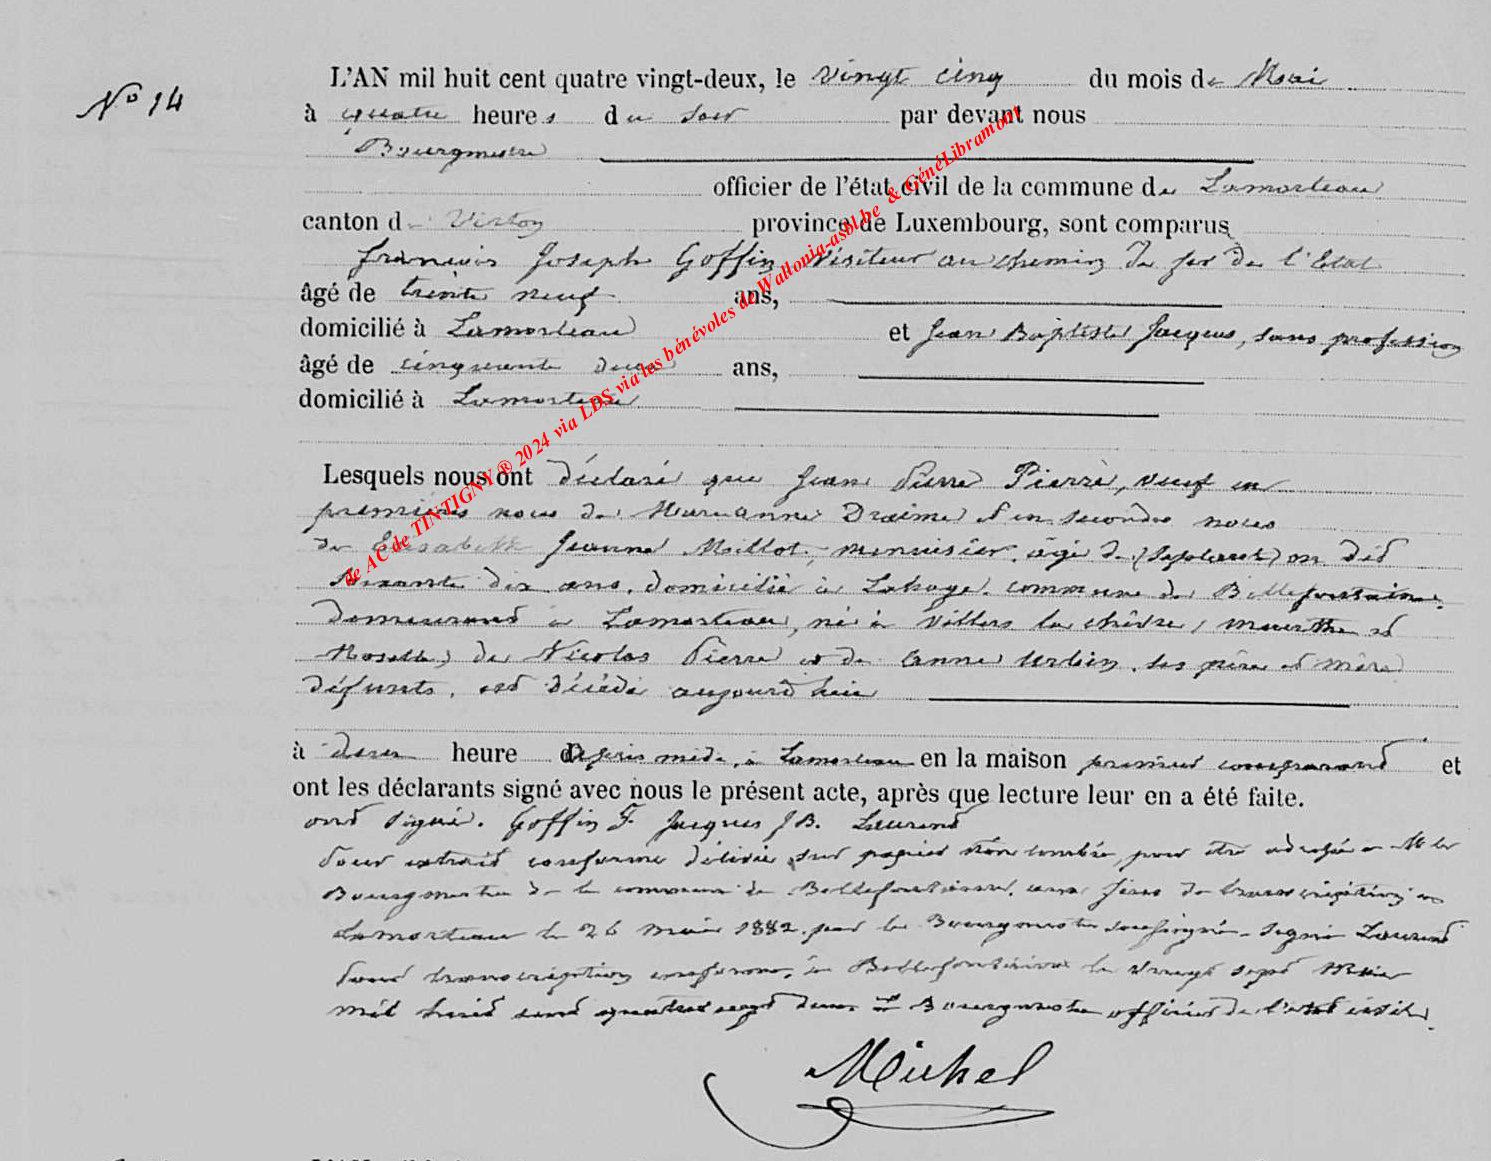 N° 14
L'AN mil huit cent quatre vingt-deux, le vingt cinq du mois de Mai
à quatre heures du soir par devant nous
Bourgmestre
officier de l'état civil de la commune de Lamorteau
canton de Virton province de Luxembourg, sont comparus
François Joseph Goffin Visiteur au chemin de fer de l'Etat
âgé de trente neuf ans,
domicilié à Lamorteau et Jean Baptiste Jacques, sans profession
âgé de cinquante deux ans,
domicilié à Lamorteau
Lesquels nous ont déclaré que Jean Pierre Pierre, veuf en
premières noces de Marianne Draime & en secondes noces
de Elisabeth Jeanne Maillot, menuisier, âgé de (septante) on dit
soixante dix ans, domicilié à Lahage, commune de Bellefontaine,
demeurant à Lamorteau, né à Villers la chèvre, (meurthe et
Moselle) de Nicolas Pierre et de Anne Urbin, ses père et mère
défunts, est décédé aujourd'hui
à deux heure d après midi, à Lamorteau en la maison premier comparant et
ont les déclarants signé avec nous le présent acte, après que lecture leur en a été faite.
ont signé. Goffin F. Jacques J B. Laurent
Pour extrait conforme délivré sur papier non timbré, pour être adressé à M le
Bourgmestre de la commune de Bellefontaine, aux fins de transcription à
Lamorteau le 26 mai 1882. par le Bourgmestre soussigné. signé Laurent
Pour transcription conforme, à Bellefontaine le vingt sept Mai
mil huit cent quatre vingt deux. Le Bourgmestre officier de l'état civil.
Michel
de AC de TINTIGNY ® 2024 via LDS via les bénévoles de Wallonia-asbl.be & GénéLibramont